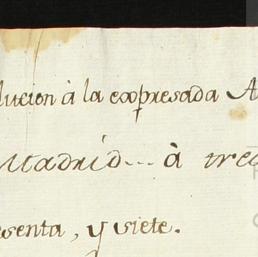 lucion à la expresada A
Madrid... à trec
senta, y siete.